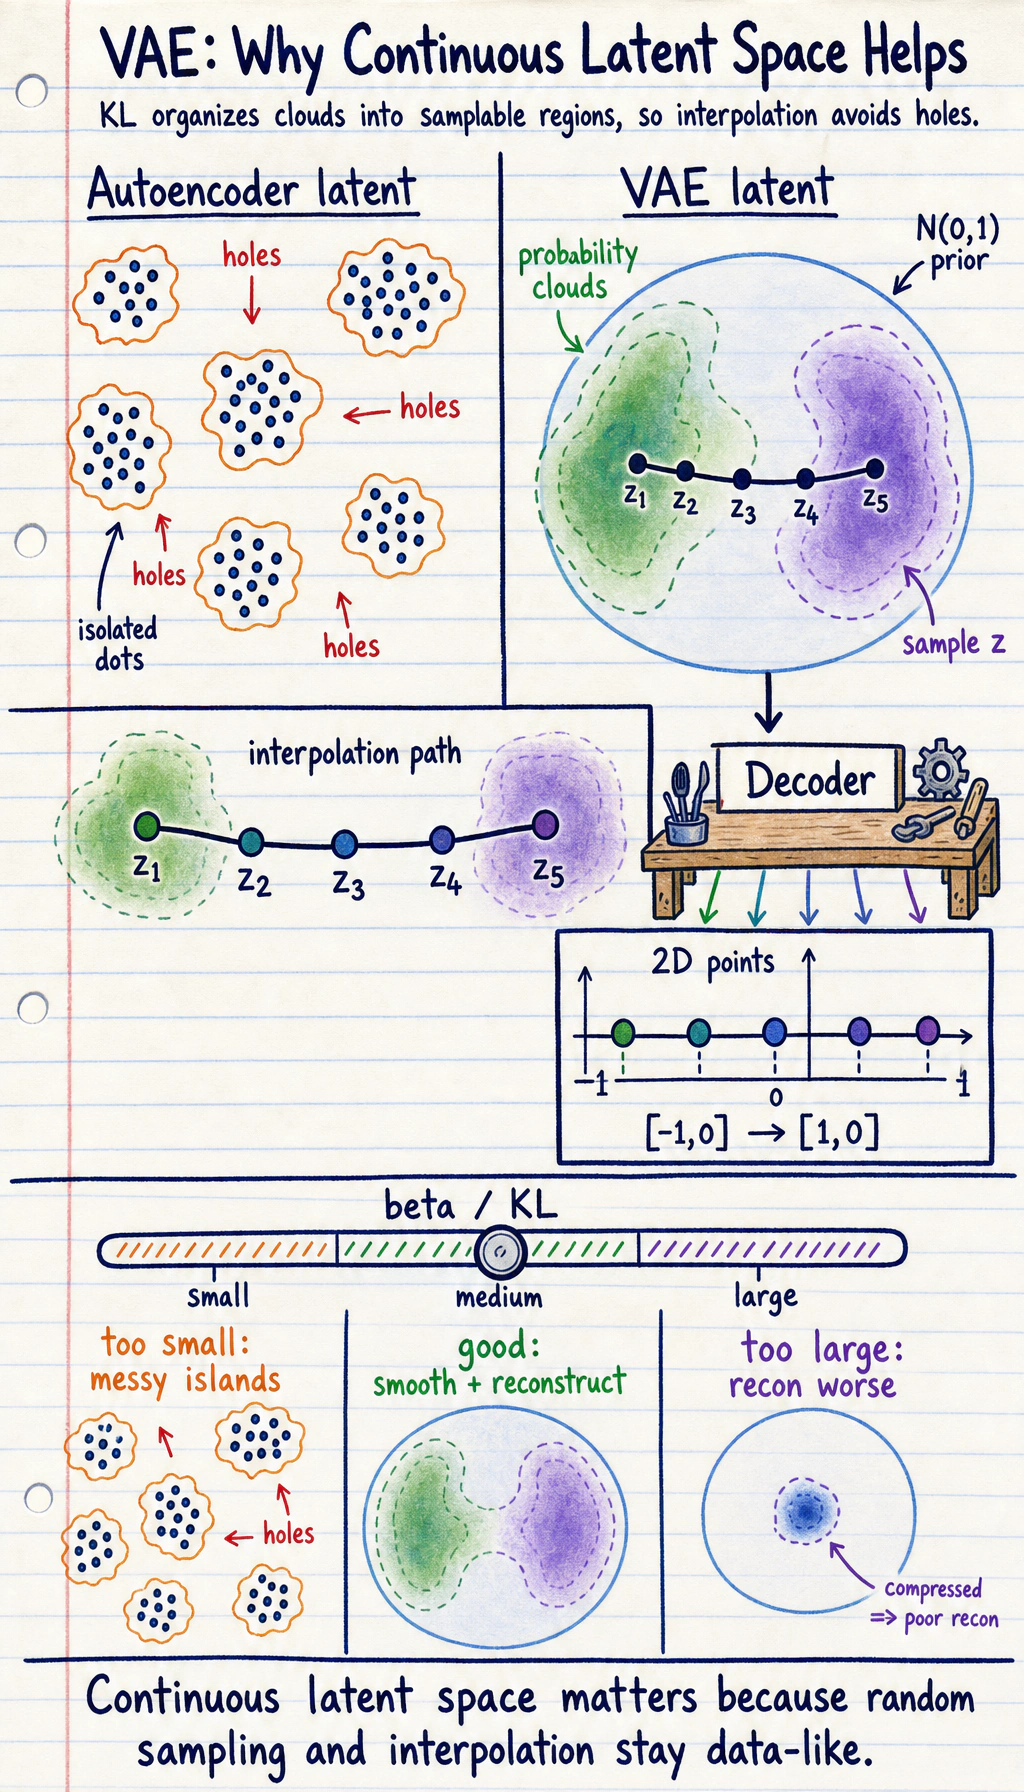 VAE: Why Continuous Latent Space Helps
KL organizes clouds into samplable regions, so interpolation avoids holes.
Autoencoder latent
holes
holes
holes
holes
isolated
dots
VAE latent
N(0,1)
prior
probability
clouds
z₁ z₂ z₃ z₄ z₅
sample z
interpolation path
z₁ z₂ z₃ z₄ z₅
Decoder
2D points
-1 0 1
[-1,0] → [1,0]
beta / KL
small medium large
too small:
messy islands
holes
good:
smooth + reconstruct
too large:
recon worse
compressed
⇒ poor recon
Continuous latent space matters because random
sampling and interpolation stay data-like.